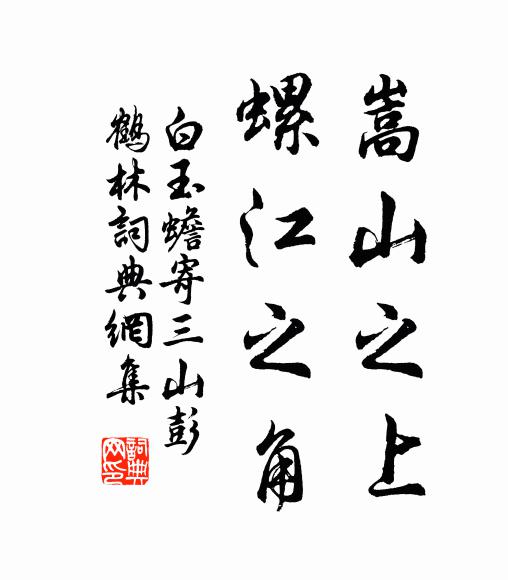 嵩山之上
螺江之角
白玉蟾寄三山彭
鶴林詞典網集
詞典网印